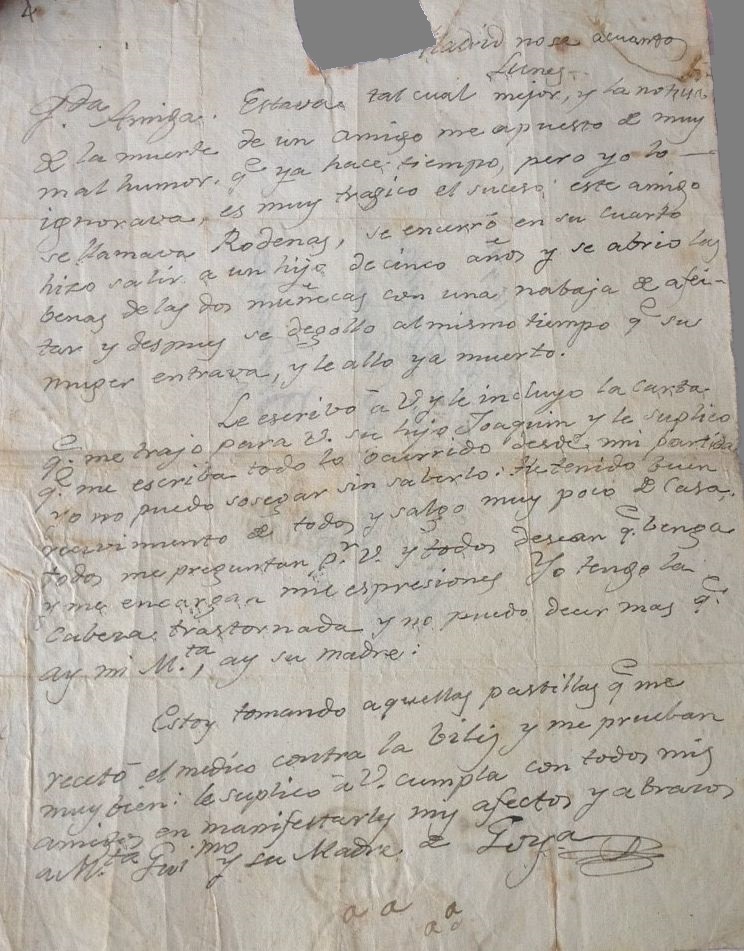 4
Madrid no se a cuantos
Lunes
Q.da Amiga. Estava tal cual mejor, y la noticia
de la muerte de un amigo me a puesto de muy
mal humor. q.e ya hace tiempo, pero yo lo —
ignorava, es muy tragico el suceso: este amigo
se llamava Rodenas, se encerró en su cuarto
hizo salir a un hijo de cinco años y se abrio las
benas de las dos muñecas con una nabaja de afei-
tar y despues se degollo al mismo tiempo q.e su
muger entrava, y le allo ya muerto.
Le escribo á V. y le incluyo la carta
q.e me trajo para V. su hijo Joaquin y le suplico
q.e me escriba todo lo ocurrido desde mi partida
yo no puedo sosegar sin saberlo: He tenido buen
recivimiento de todos y salgo muy poco de casa,
todos me preguntan p.r V. y todos desean q.e benga
y me encargan mil espresiones Yo tengo la
cabeza trastornada y no puedo decir mas q.e
ay mi M.ta, ay su madre:
Estoy tomando aquellas pastillas q.e me
recetó el medico contra la bilis y me prueban
muy bien: le suplico á V. cumpla con todos mis
amigos en manifestarles mis afectos y abrazos
a M.ta Gui.mo y su Madre de Goya
a a
a a